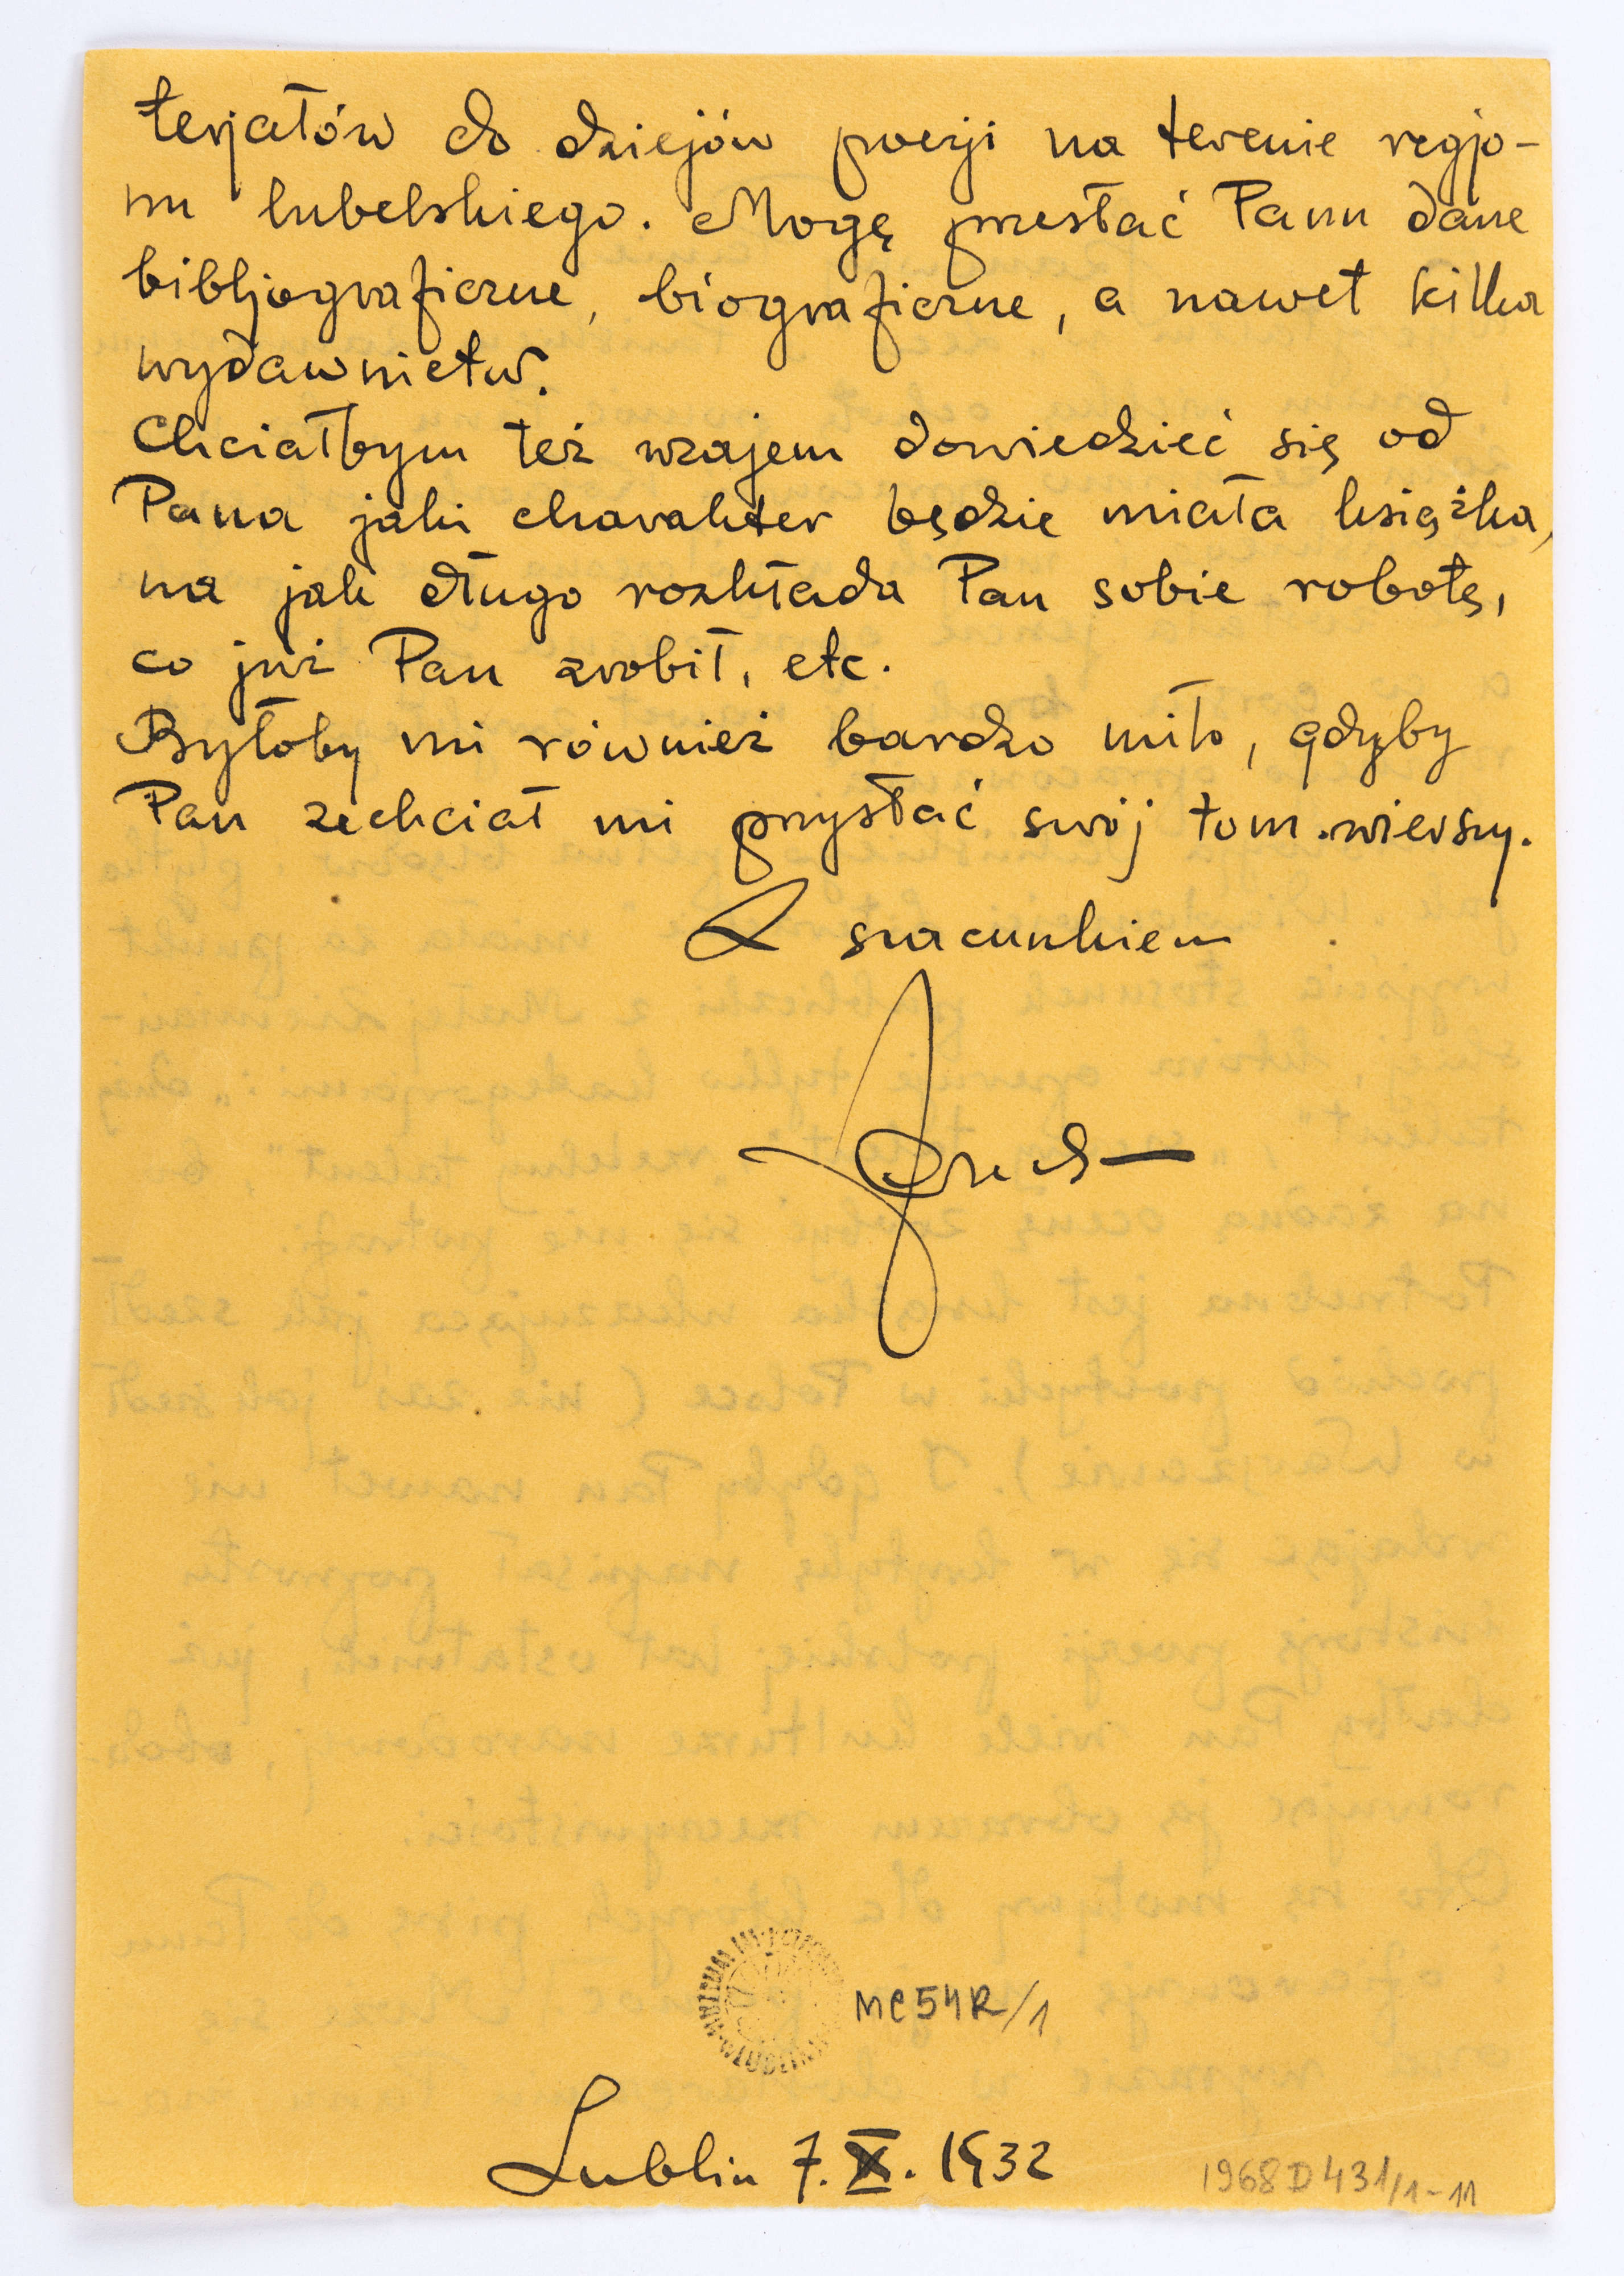 terjałów do dziejów poezji na terenie regjo-
nu lubelskiego. Mogę przesłać Panu dane
bibljograficzne, biograficzne, a nawet kilka
wydawnictw.
Chciałbym też wzajem dowiedzieć się od
Pana jaki charakter będzie miała książka,
na jak długo rozkłada Pan sobie robotę,
co już Pan zrobił, etc.
Byłoby mi również bardzo miło, gdyby
Pan zechciał mi przysłać swój tom wierszy.
Z szacunkiem
MC54R/1
Lublin 7. X. 1932
1968 D 431/1-11